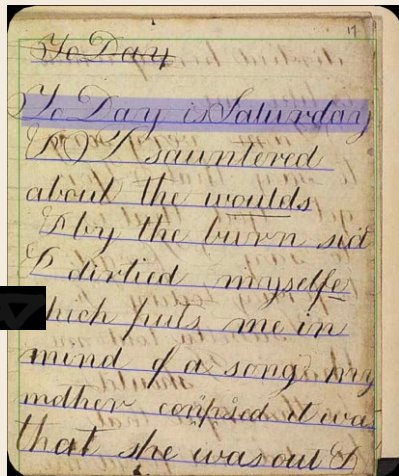 17
To Day
To Day is Saturday
& I sauntered
about the woulds
& by the burn sid
& dirtied myselfe
which puts me in
mind of a song my
mother composed it was
that she was out &